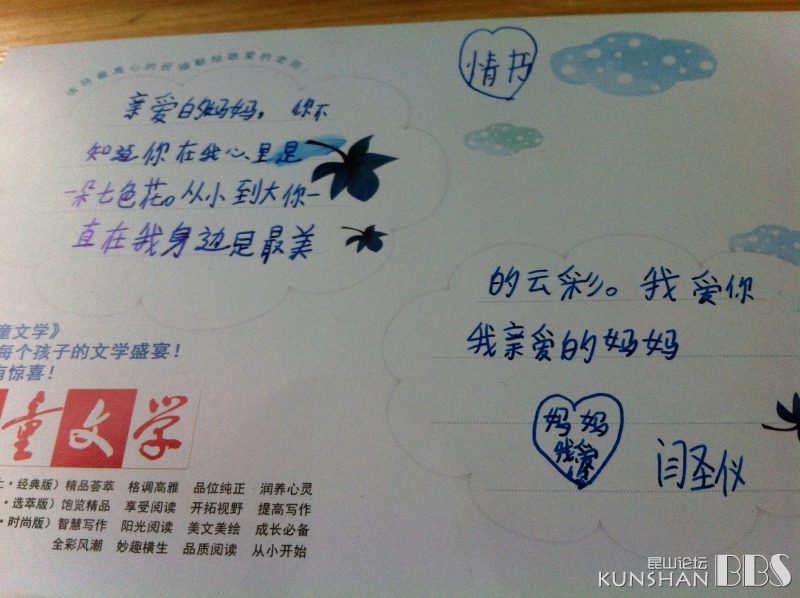 情书
献给敬爱的老师
亲爱的妈妈，你不
知道你在我心里是
一朵七色花。从小到大你一
直在我身边是最美
的云彩。我爱你
我亲爱的妈妈
妈妈
我爱
你
闫圣仪
童文学》
每个孩子的文学盛宴！
有惊喜！
童文学
·经典版）精品荟萃 格调高雅 品位纯正 润养心灵
·选萃版）饱览精品 享受阅读 开拓视野 提高写作
·时尚版）智慧写作 阳光阅读 美文美绘 成长必备
全彩风潮 妙趣横生 品质阅读 从小开始
昆山论坛
KUNSHAN BBS